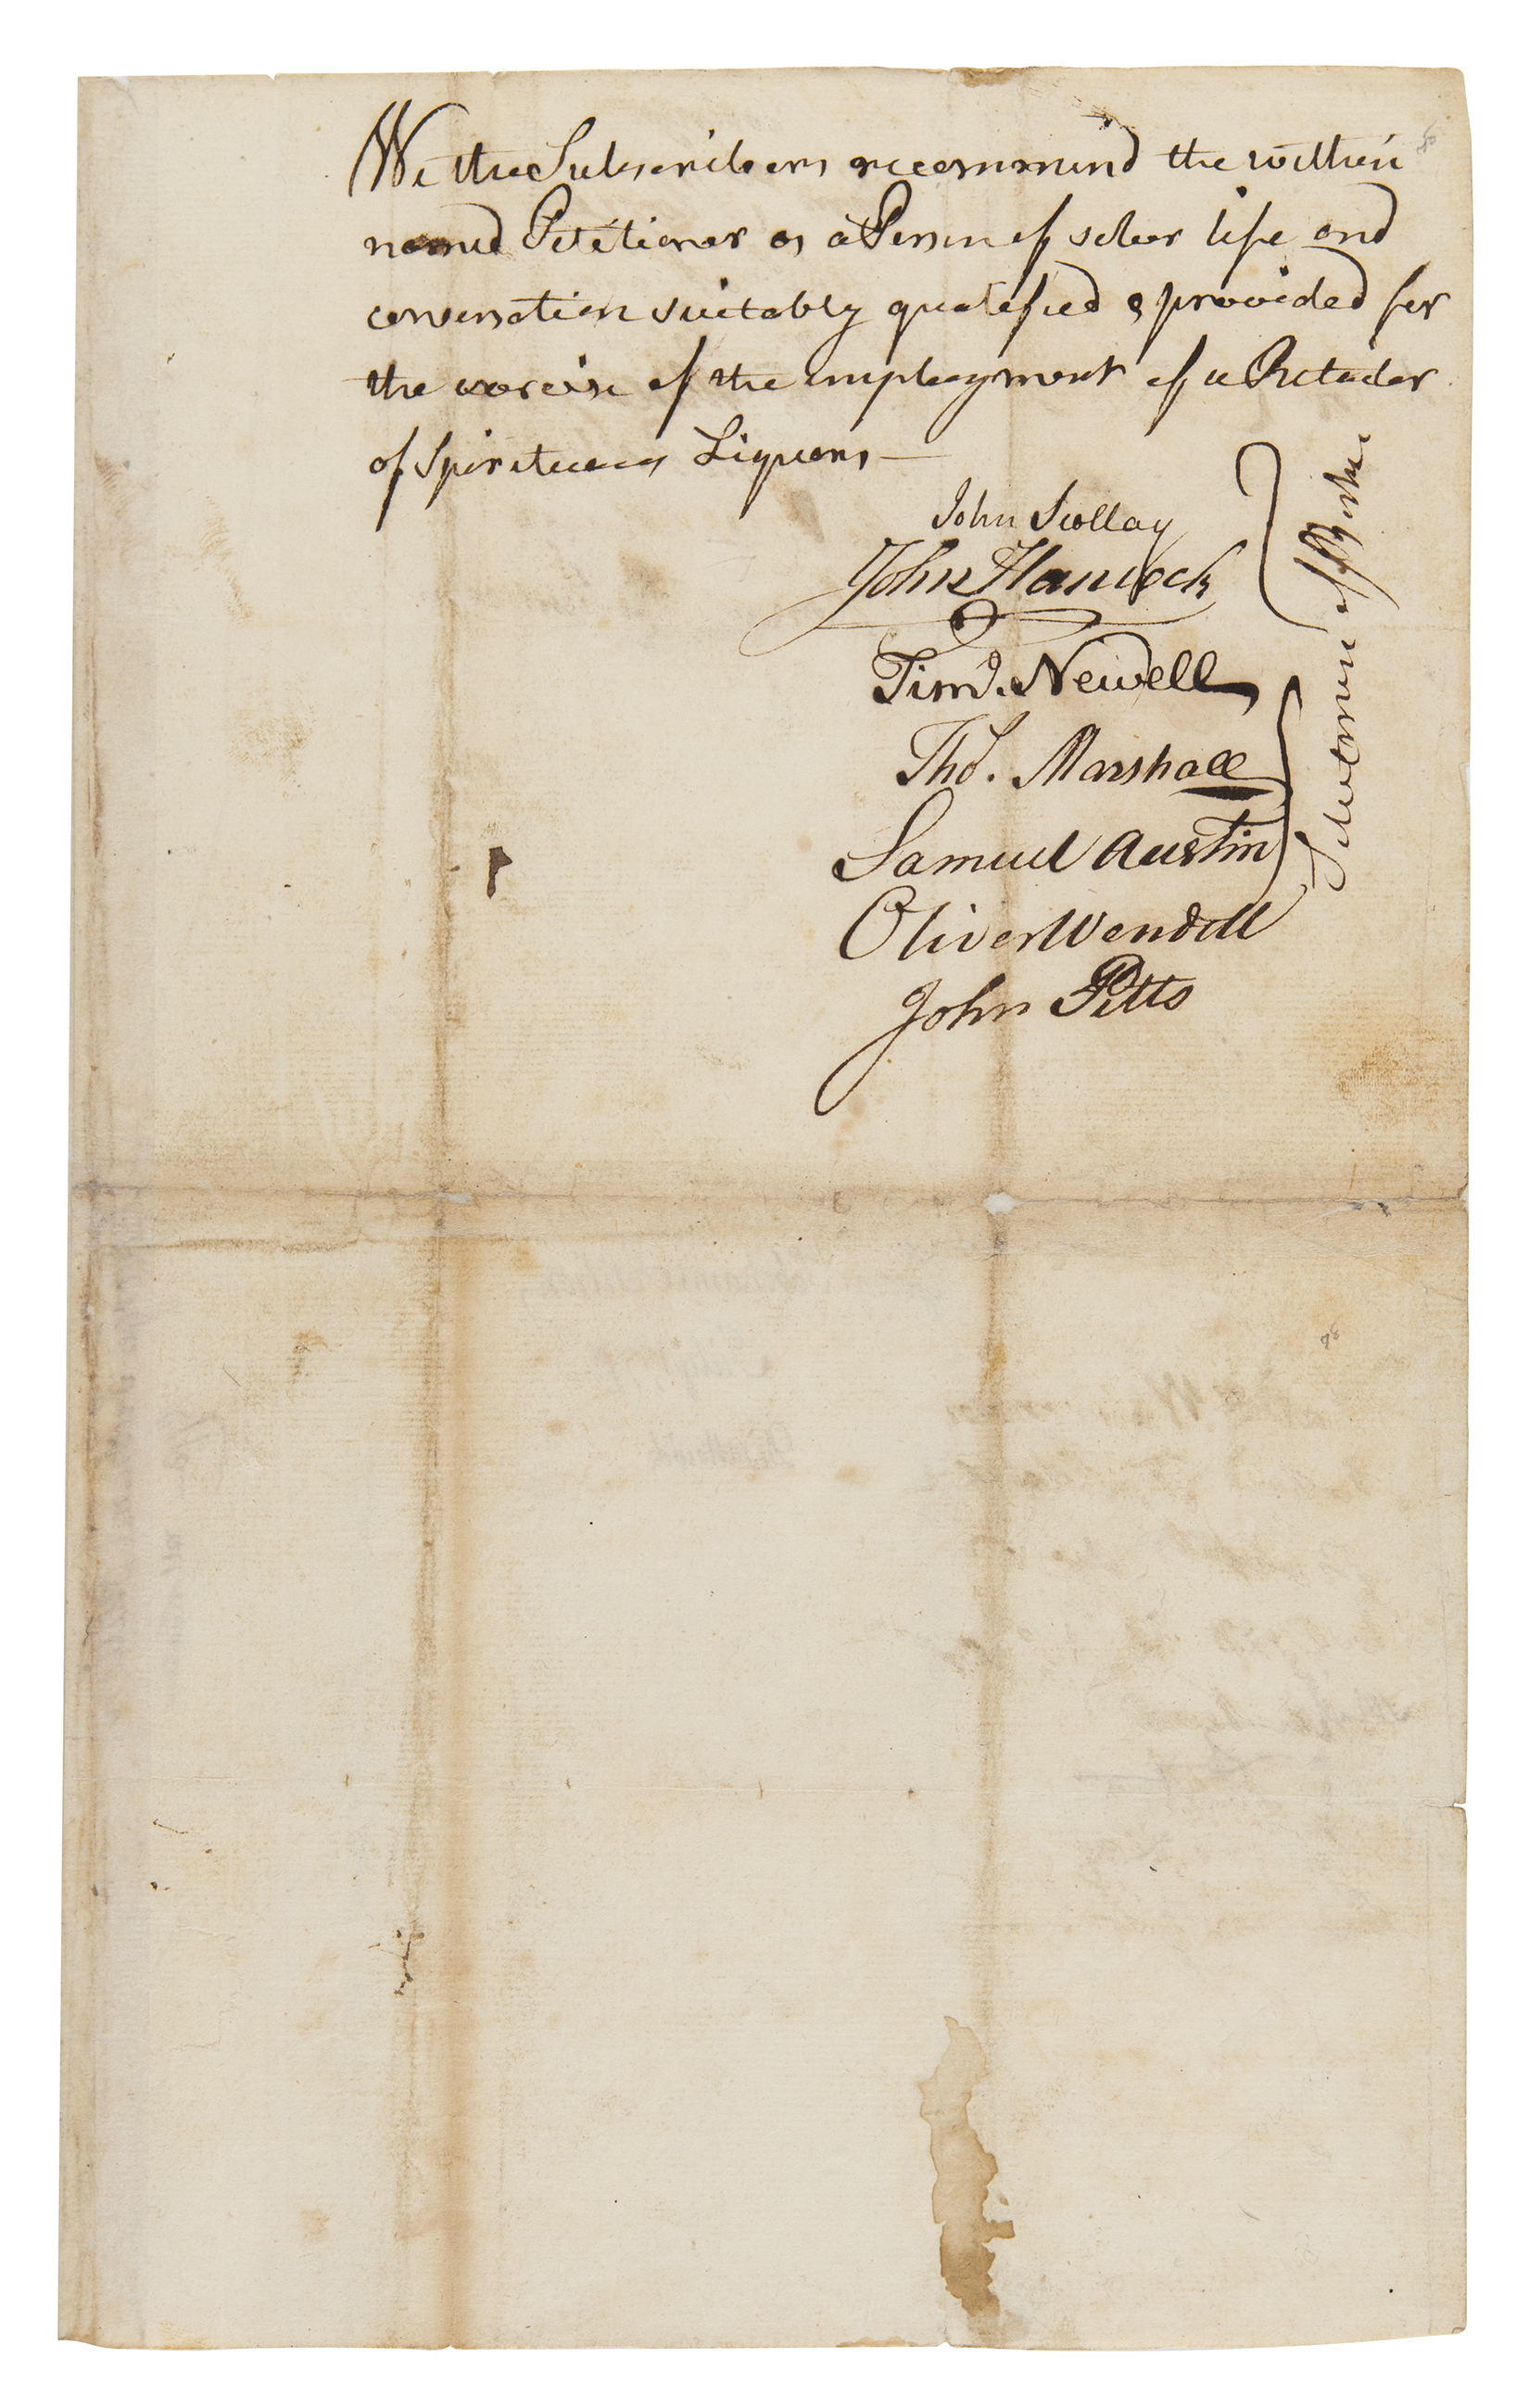 We the Subscribers recommend the within
named Petitioner as a Person of sober life and
conversation suitably qualified & provided for
the exercise of the employment of a Retailer
of Spirituous Liquors—
John Scollay
John Hancock
Timo. Newell
Tho. Marshall
Samuel Austin
Oliver Wendell
John Pitts
Selectmen of Boston